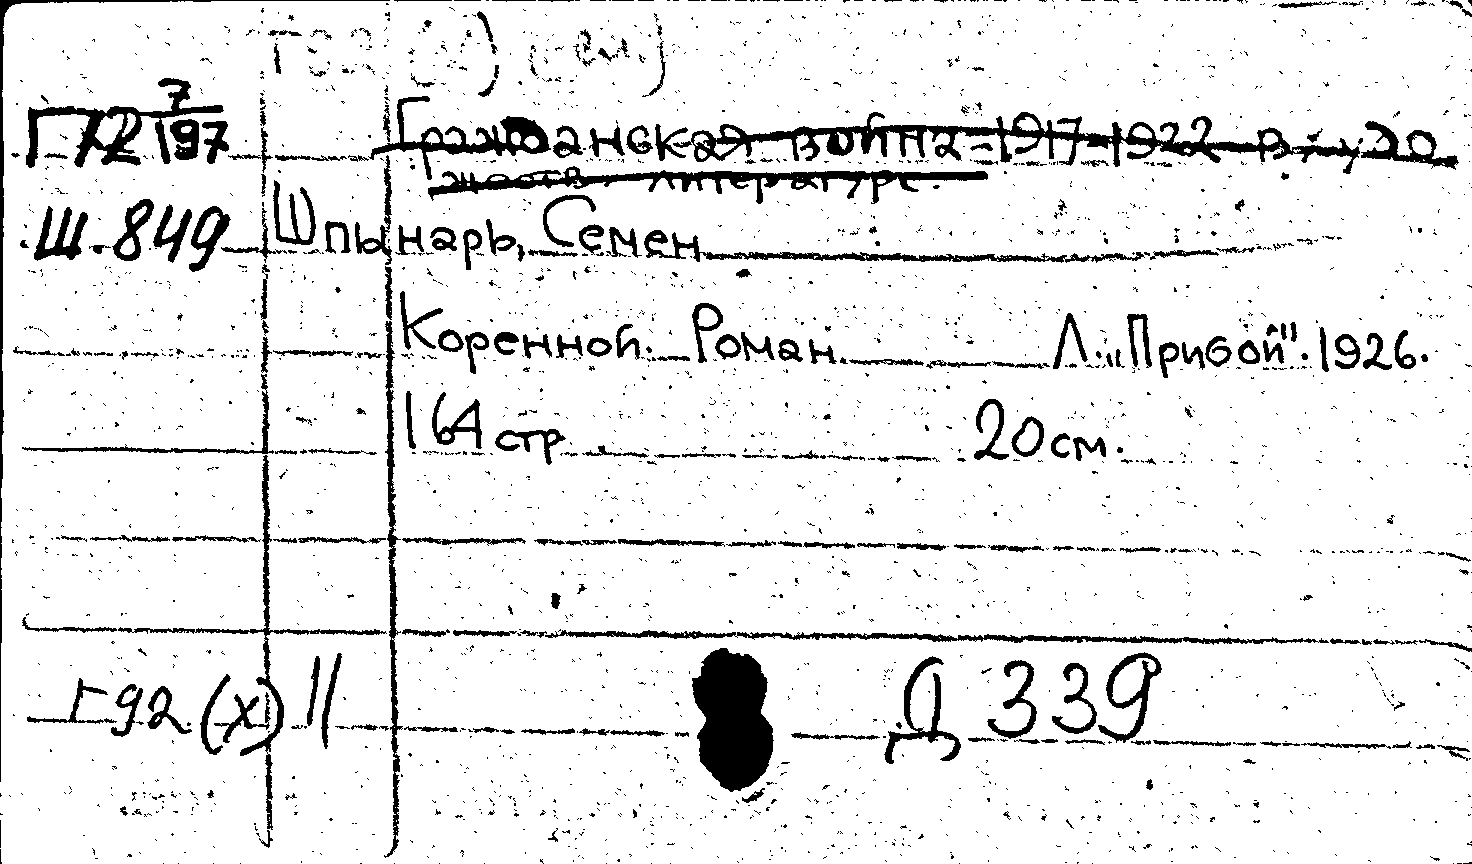 7
Г72 197 Гражданская война - 1917-1922 в худо
жеств. литературе.
Ш.849 Шпынарь, Семен
Коренной. Роман. Л. „Прибой". 1926.
164 стр. 20 см.
г92 (х) || Д 339